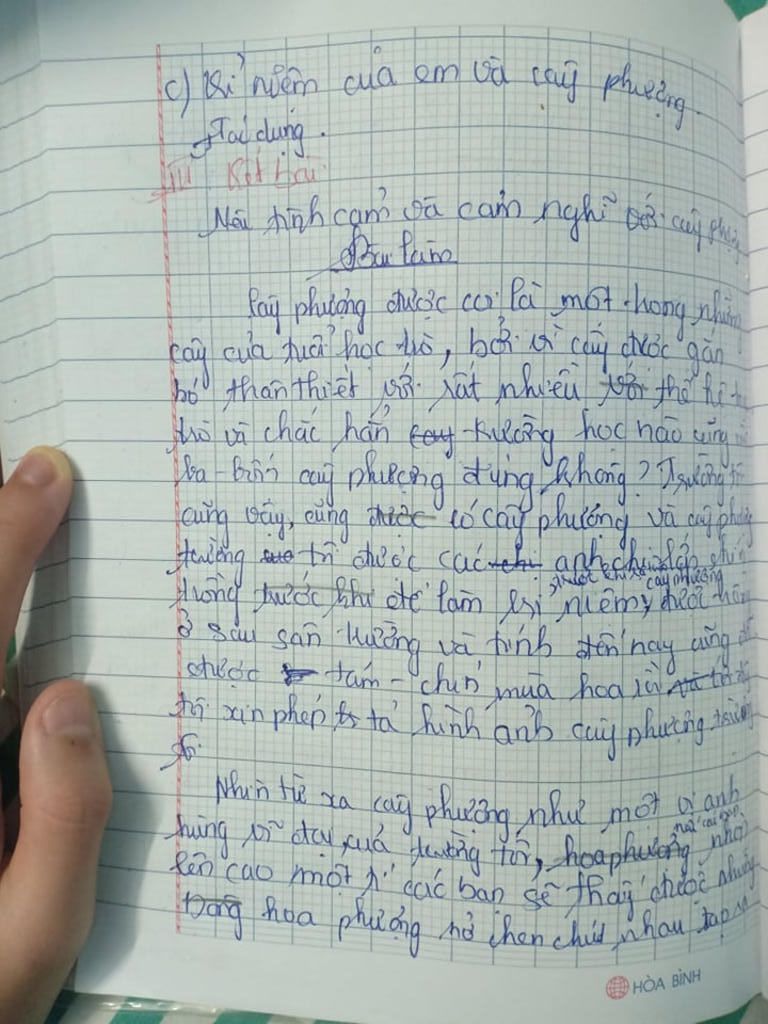 c) Kỉ niệm của em và cây phượng.
Tác dụng.
III Kết bài
Nêu tình cảm và cảm nghĩ với cây phượng
Bài làm
Cây phượng được coi là một trong những
cây của tuổi học trò, bởi vì cây được gắn
bó thân thiết với rất nhiều với thế hệ
trò và chắc hẳn trường học nào cũng
ba-bốn cây phượng đúng không? Trường
cũng vậy, cũng được có cây phượng và cây phượng
trường tôi được các chị anh chị lớp
trồng trước khi để làm kỉ niệm, cây phượng được
ở sau sân trường và tính đến nay cũng
được tám-chín mùa hoa rồi
tôi xin phép tả hình ảnh cây phượng
đó.
Nhìn từ xa cây phượng như một vị anh
hùng vĩ đại của trường tôi, hoa phượng
lên cao một tí các bạn sẽ thấy được những
bông hoa phượng nở chen chúc nhau
HÒA BÌNH